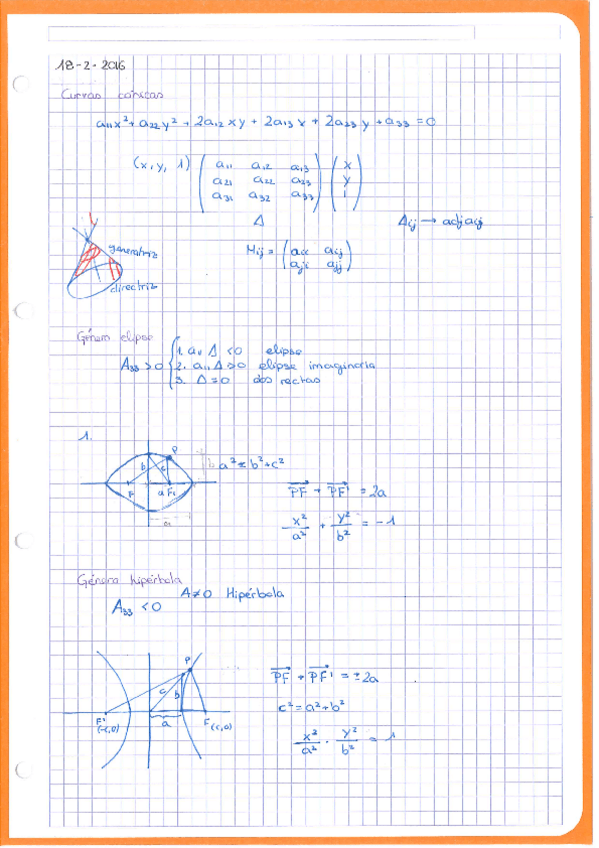 18-2-2016
Curvas cónicas
a₁₁x² + a₂₂y² + 2a₁₂xy + 2a₁₃x + 2a₂₃y + a₃₃ = 0
(x, y, 1) ( a₁₁ a₁₂ a₁₃ ) ( x )
a₂₁ a₂₂ a₂₃ y
a₃₁ a₃₂ a₃₃ 1
Δ Δij → adj aij
generatriz
Mij = ( aii aij )
aji ajj
directriz
Género elipse
A₃₃ > 0 { 1. a₁₁ Δ < 0 elipse
2. a₁₁ Δ > 0 elipse imaginaria
3. Δ = 0 dos rectas
1.
P
b c b a² = b² + c²
F a F'
a
PF + PF' = 2a
x²/a² + y²/b² = -1
Género hipérbola
A ≠ 0 Hipérbola
A₃₃ < 0
P
c b
a
F' (-c,0) F (c,0)
PF + PF' = ±2a
c² = a² + b²
x²/a² - y²/b² = 1